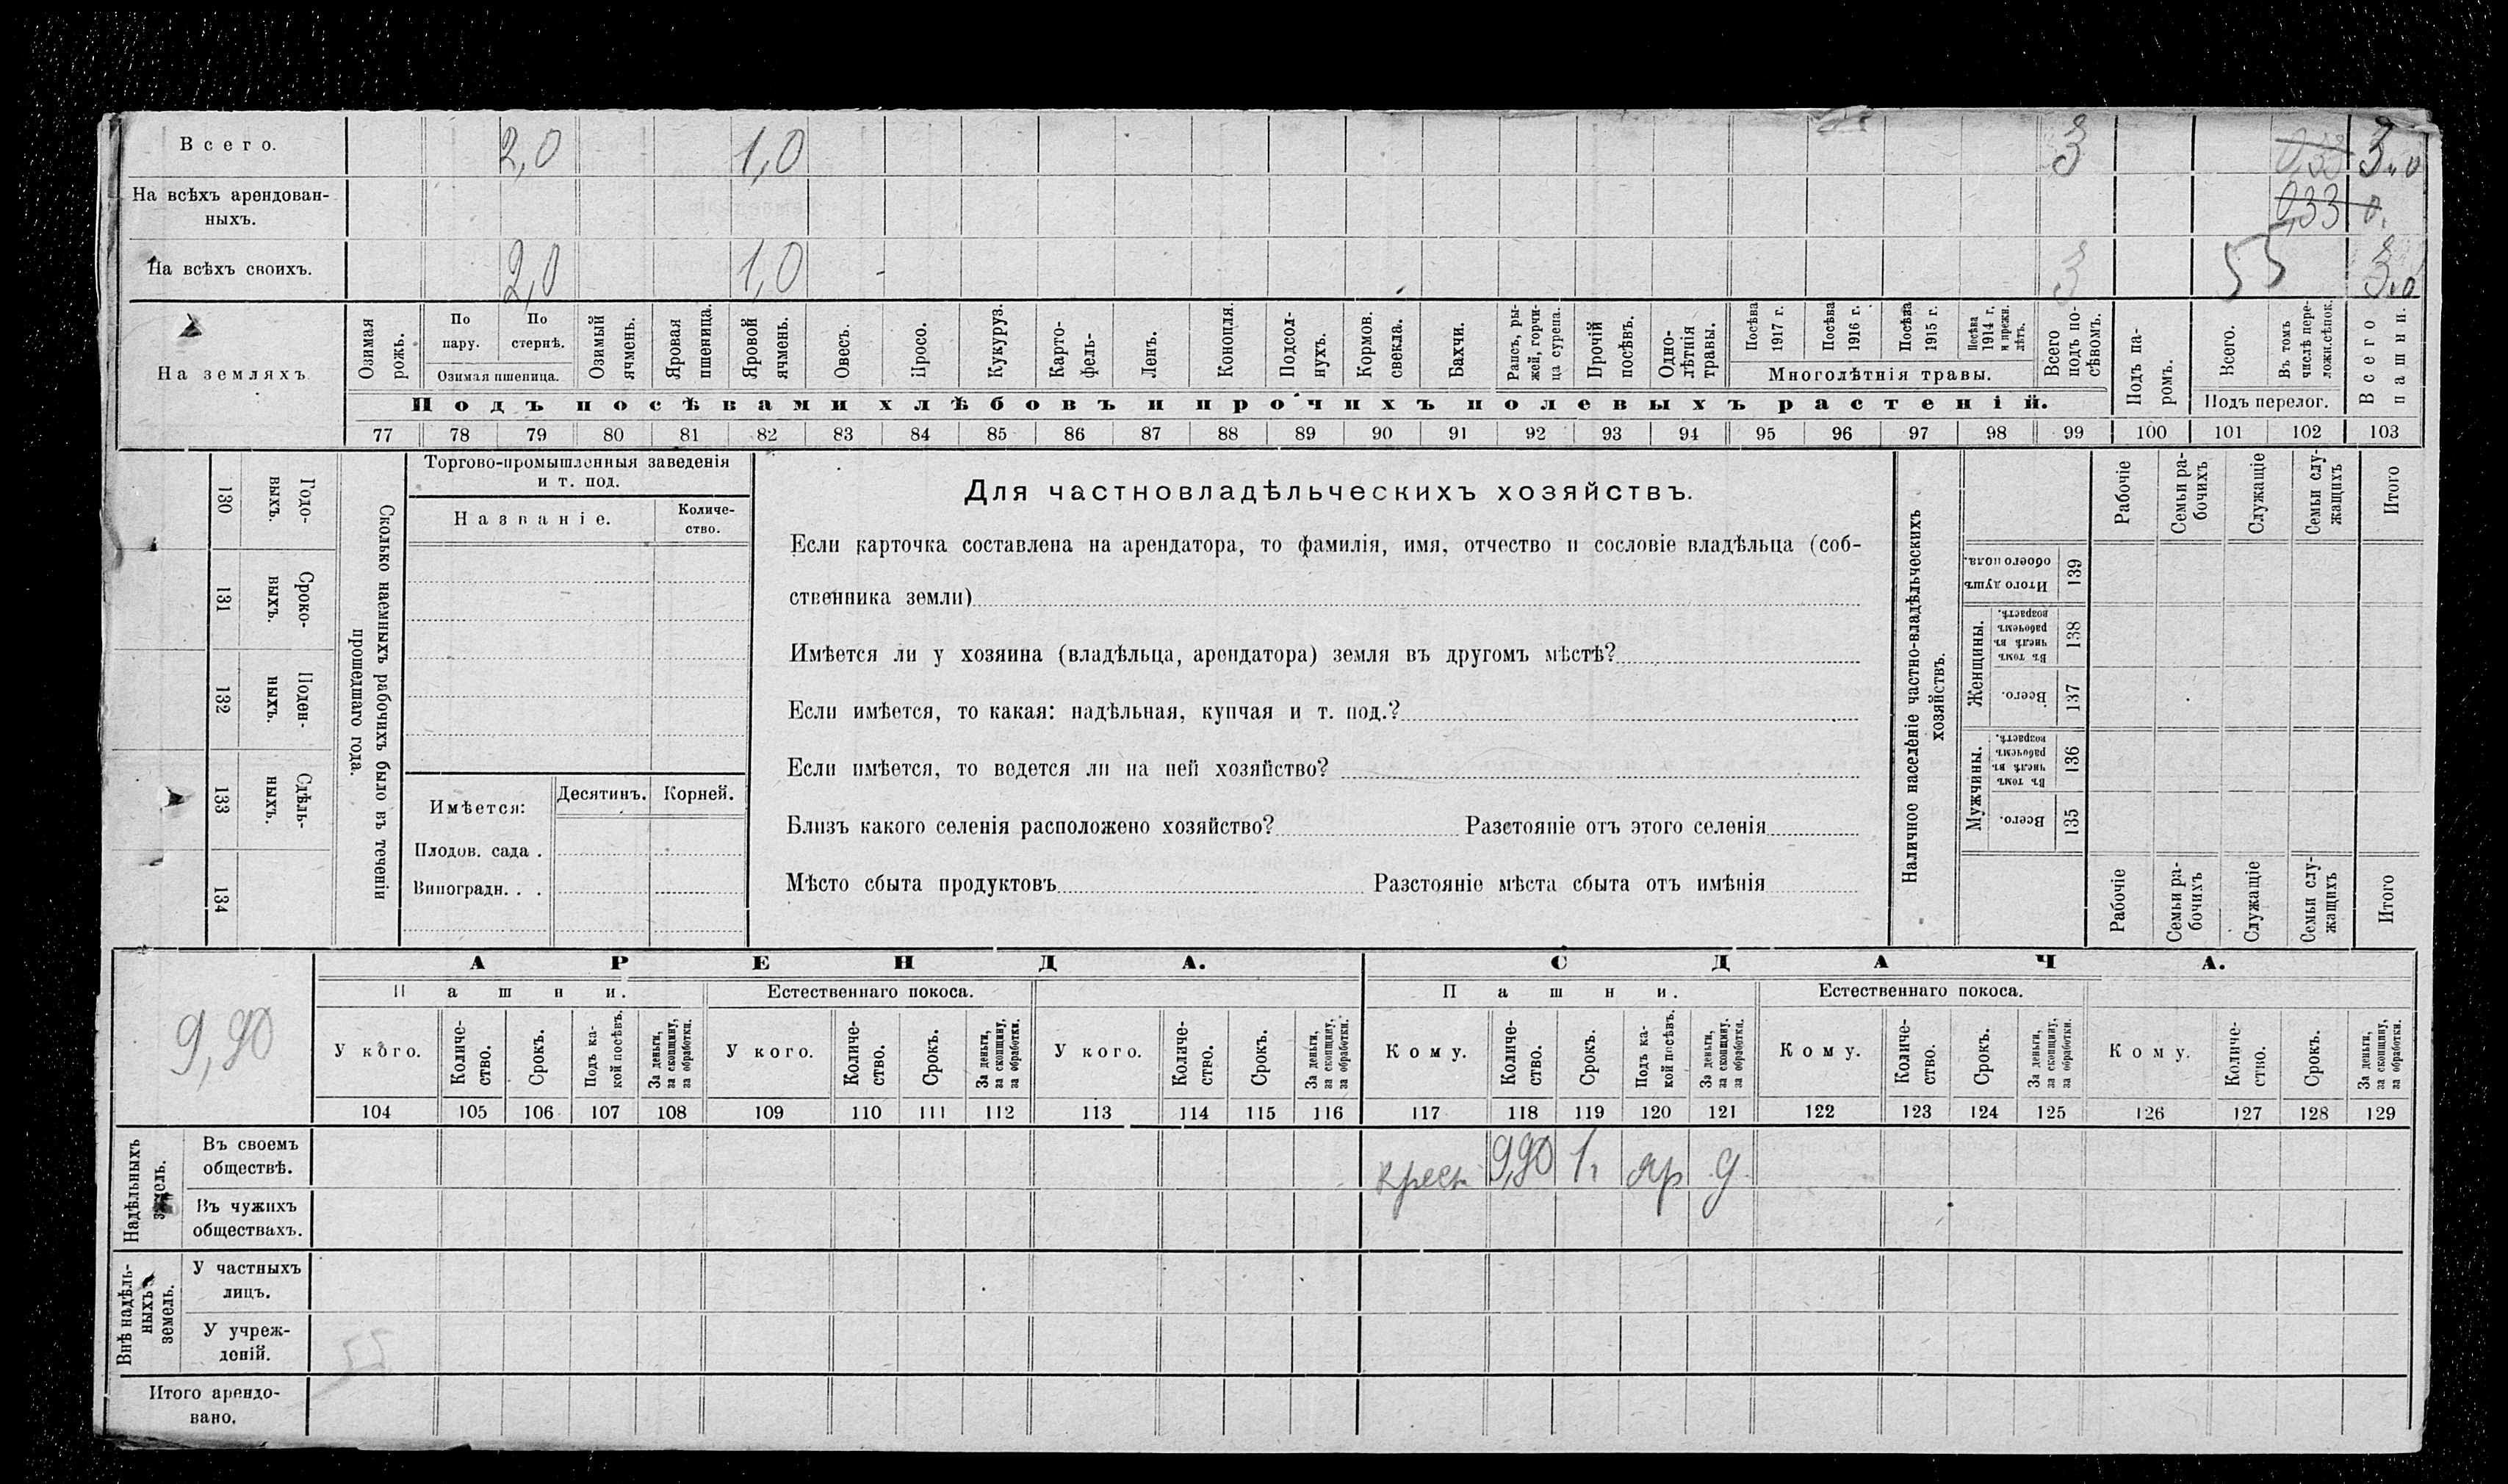 Всего. 2,0 1,0 3 0,33 3,0
На всѣхъ арендован-
ныхъ. 0,33 0.
На всѣхъ своихъ. 2,0 1,0 3 55 3,0
На земляхъ
Озимая рожь.
По пару.
По стернѣ.
Озимая пшеница.
Озимый ячмень.
Яровая пшеница.
Яровой ячмень.
Овесъ.
Просо.
Кукуруз.
Карто-
фель-
Ленъ.
Конопля.
Подсол-
нухъ.
Кормов.
свекла.
Бахчи.
Рапсъ, ры-
жей, горчи-
ца сурепа.
Прочій
посѣвъ.
Одно-
лѣтнія
травы.
Посѣва
1917 г.
Посѣва
1916 г.
Посѣва
1915 г.
Посѣва
1914 г.
и прежн.
лѣтъ.
Многолѣтнія травы.
Всего
подъ по-
сѣвомъ.
Подъ па-
ромъ.
Всего.
Въ томъ
числѣ пере-
ложн.сѣнок.
Подъ перелог.
Всего
пашни.
Подъ посѣвами хлѣбовъ и прочихъ полевыхъ растеній.
77 78 79 80 81 82 83 84 85 86 87 88 89 90 91 92 93 94 95 96 97 98 99 100 101 102 103
130 Годо-
выхъ.
131 Сроко-
выхъ.
132 Поден-
ныхъ.
133 Сдѣль-
ныхъ.
134
Сколько наемныхъ рабочихъ было въ теченіи
прошедшаго года.
Торгово-промышленныя заведенія
и т. под.
Названіе.
Количе-
ство.
Имѣется:
Десятинъ. Корней.
Плодов. сада .
Виноградн. . .
Для частновладѣльческихъ хозяйствъ.
Если карточка составлена на арендатора, то фамилія, имя, отчество и сословіе владѣльца (соб-
ственника земли)
Имѣется ли у хозяина (владѣльца, арендатора) земля въ другомъ мѣстѣ?
Если имѣется, то какая: надѣльная, купчая и т. под.?
Если имѣется, то ведется ли на ней хозяйство?
Близъ какого селенія расположено хозяйство? Разстояніе отъ этого селенія
Мѣсто сбыта продуктовъ Разстояніе мѣста сбыта отъ имѣнія
Наличное населеніе частно-владѣльческихъ
хозяйствъ.
Рабочіе
Семьи ра-
бочихъ
Служащіе
Семьи слу-
жащихъ
Итого
Итого душъ
обоего пола.
139
Женщины.
Въ томъ
числѣ въ
рабочемъ
возрастѣ.
138
Всего.
137
Мужчины.
Въ томъ
числѣ въ
рабочемъ
возрастѣ.
136
Всего.
135
Рабочіе
Семьи ра-
бочихъ
Служащіе
Семьи слу-
жащихъ
Итого
9,90
АРЕНДА. СДАЧА.
Пашни. Естественнаго покоса. Пашни. Естественнаго покоса.
У кого.
Количе-
ство.
Срокъ.
Подъ ка-
кой посѣвъ.
За деньги,
за скопщину,
за обработки.
У кого.
Количе-
ство.
Срокъ.
За деньги,
за скопщину,
за обработки.
У кого.
Количе-
ство.
Срокъ.
За деньги,
за скопщину,
за обработки.
Кому.
Количе-
ство.
Срокъ.
Подъ ка-
кой посѣвъ.
За деньги,
за скопщину.
за обработки.
Кому.
Количе-
ство.
Срокъ.
За деньги,
за скопщину,
за обработки.
Кому.
Количе-
ство.
Срокъ.
За деньги,
за скопщину,
за обработки.
104 105 106 107 108 109 110 111 112 113 114 115 116 117 118 119 120 121 122 123 124 125 126 127 128 129
Надѣльныхъ
земель.
Въ своемъ
обществѣ. крест 9,90 1г яр д
Въ чужихъ
обществахъ.
Внѣ надѣль-
ныхъ
земель.
У частныхъ
лицъ.
У учреж-
деній. 55
Итого арендо-
вано.